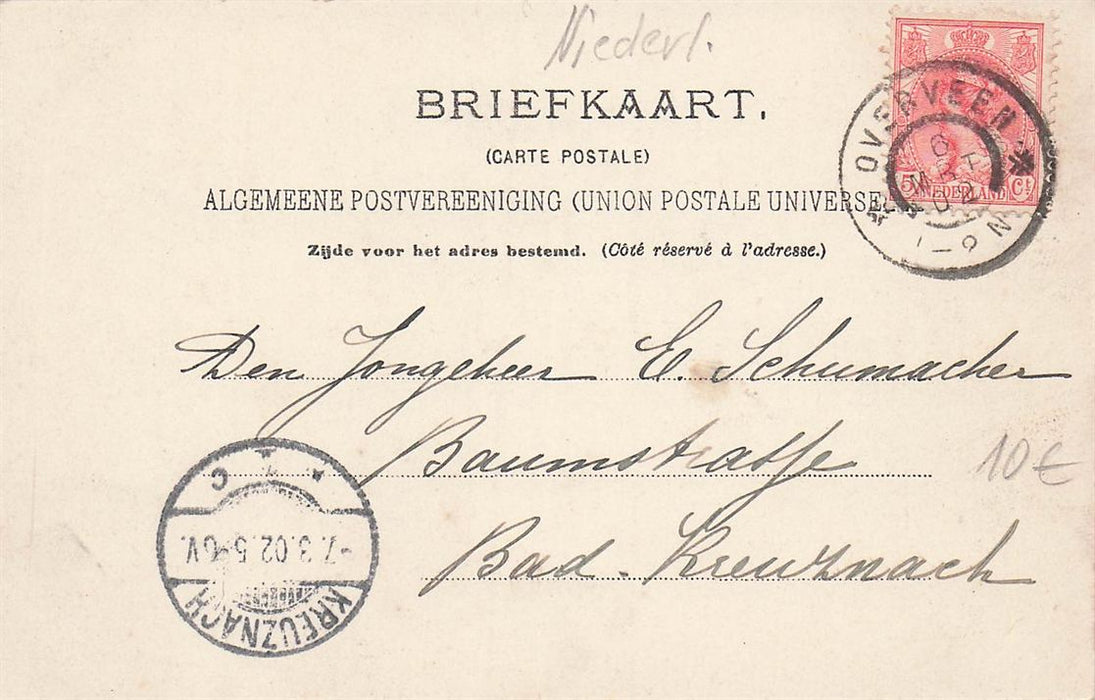 Niederl.
BRIEFKAART.
(CARTE POSTALE)
ALGEMEENE POSTVEREENIGING (UNION POSTALE UNIVERSE
Zijde voor het adres bestemd. (Côté réservé à l'adresse.)
OVERVEEN
MRT
1-2N
5 NEDERLAND Ct
Den Jongeheer E. Schumacher
Baumstraße
Bad-Kreuznach
10€
7.3.02.5-6V.
KREUZNACH